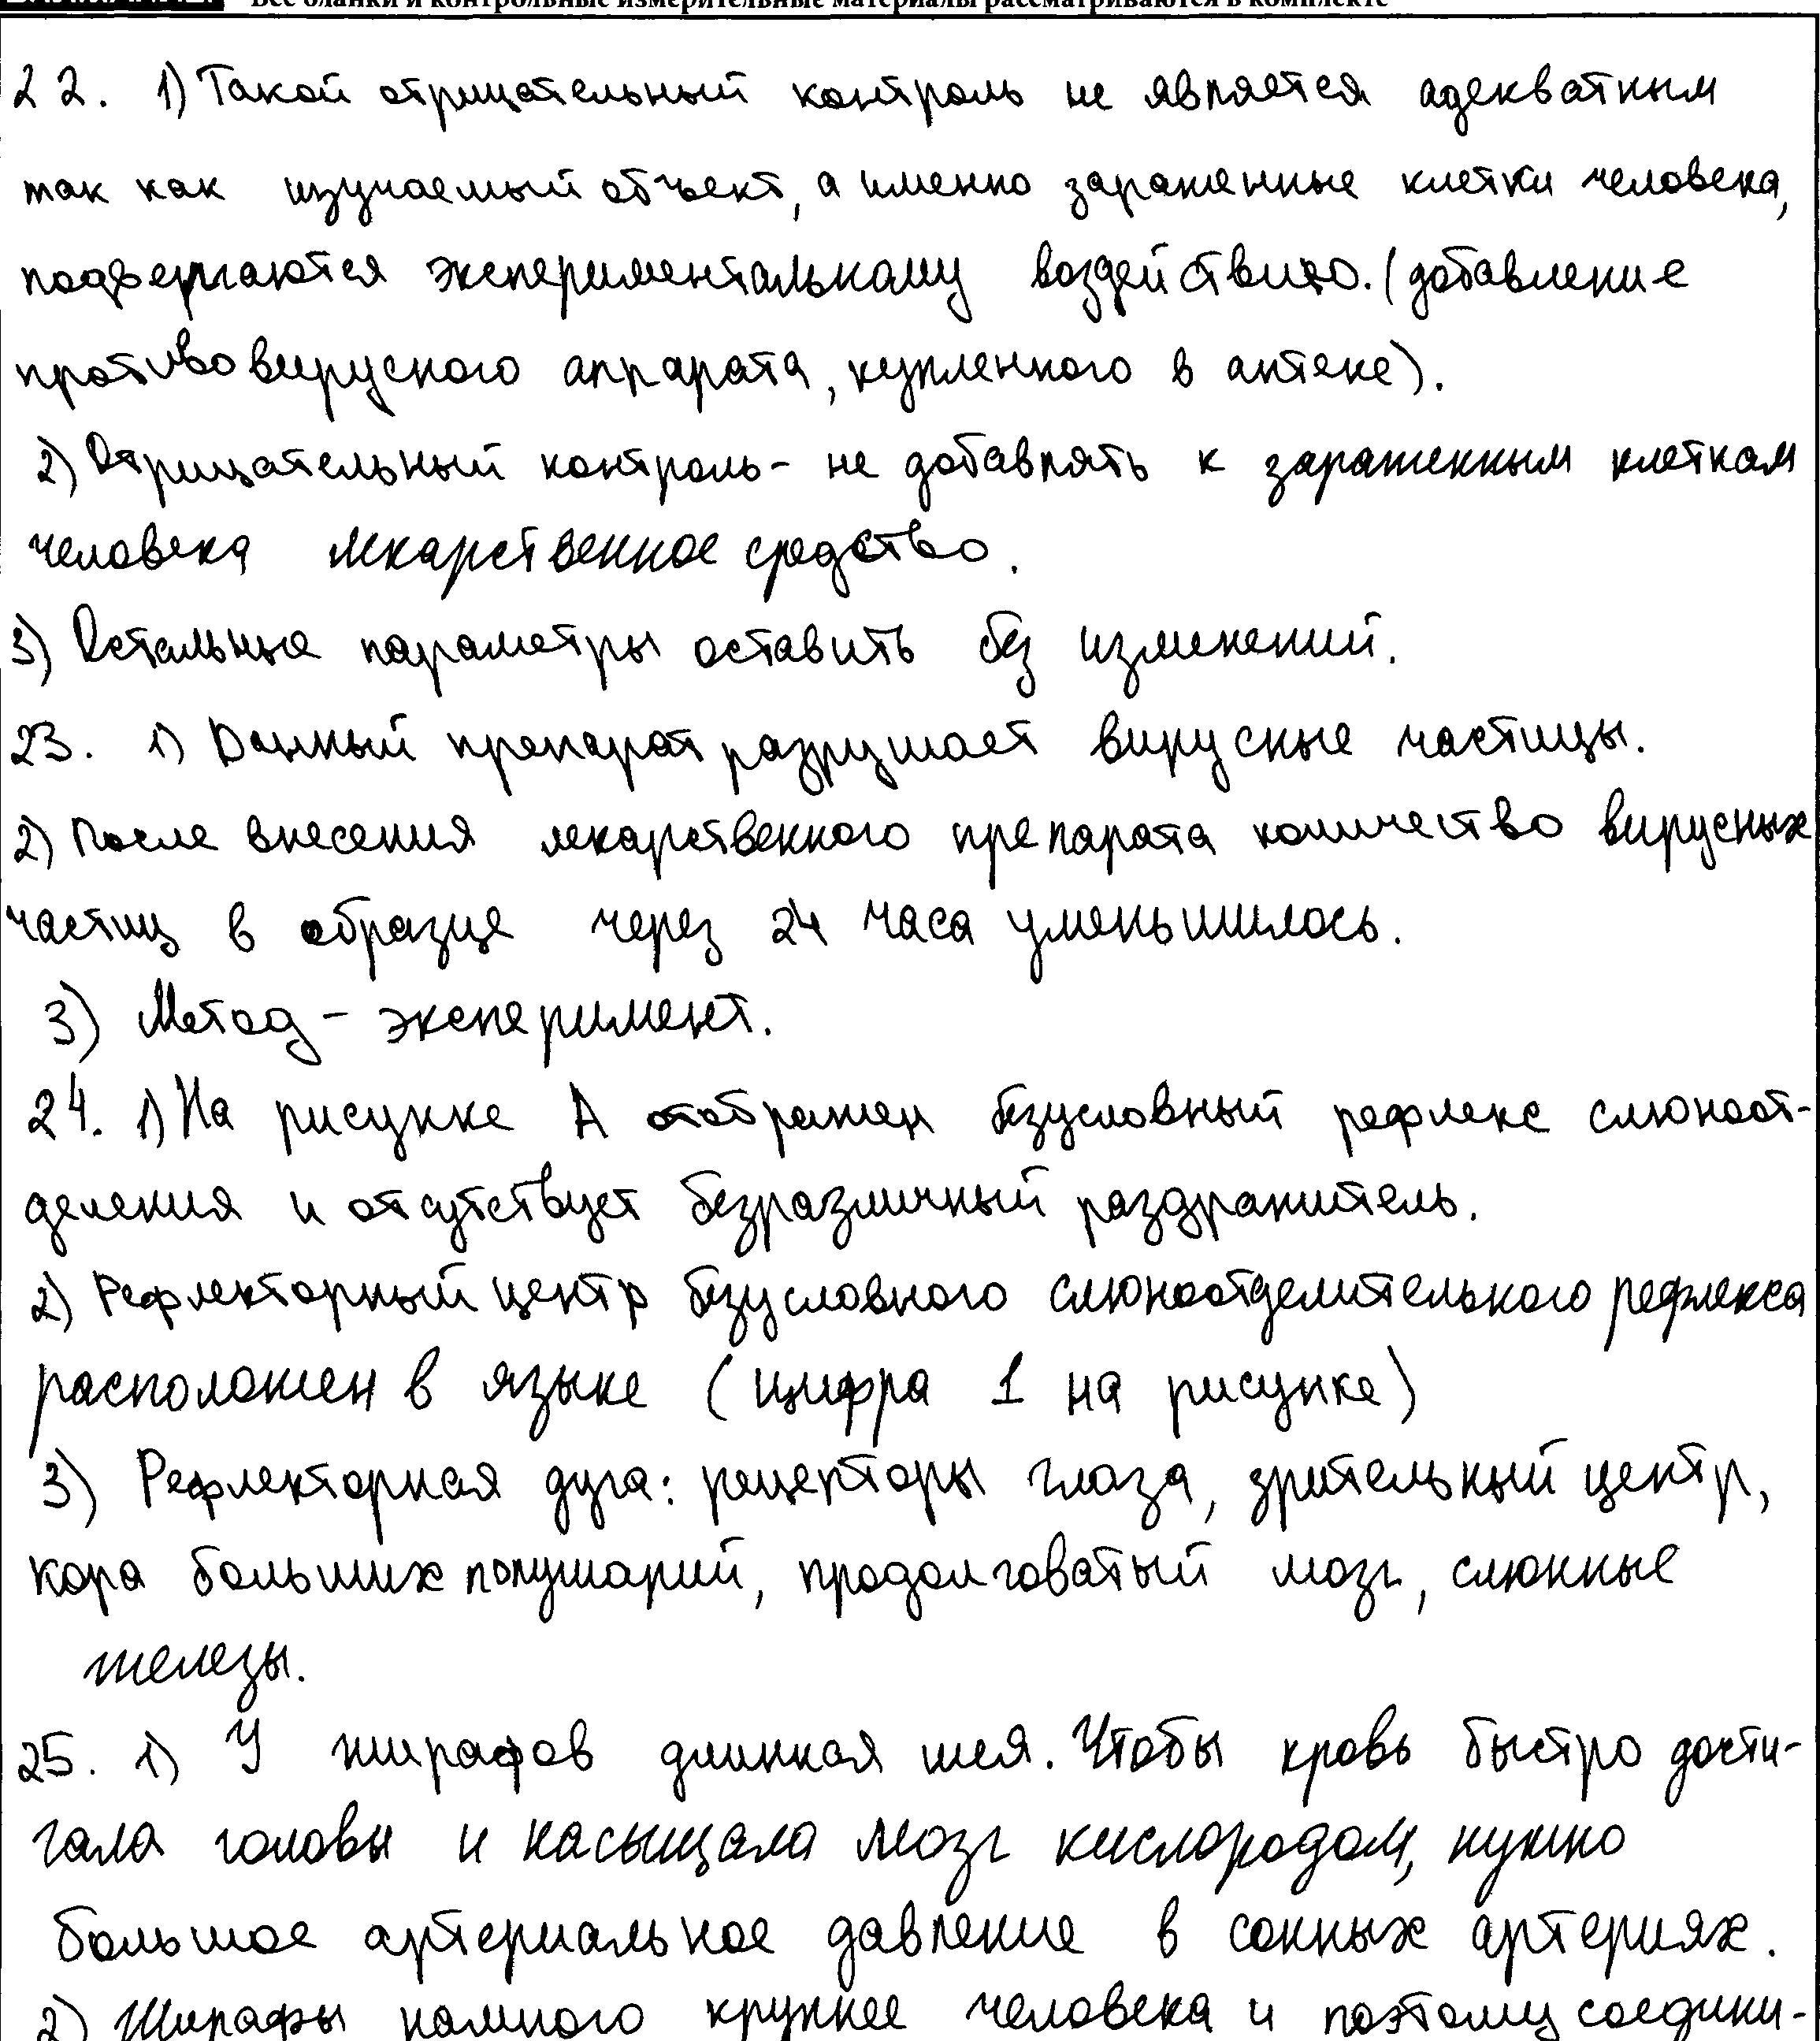 Все бланки и контрольные измерительные материалы рассматриваются в комплекте
22. 1) Такой отрицательный контроль не является адекватным
так как изучаемый объект, а именно зараженные клетки человека,
подвергаются экспериментальному воздействию. (добавление
противовирусного аппарата, купленного в аптеке).
2) Отрицательный контроль - не добавлять к зараженным клеткам
человека лекарственное средство.
3) Остальные параметры оставить без изменений.
23. 1) Данный препарат разрушает вирусные частицы.
2) После внесения лекарственного препарата количество вирусных
частиц в образце через 24 часа уменьшилось.
3) Метод - эксперимент.
24. 1) На рисунке А отображен безусловный рефлекс слюноот-
деления и отсутствует безразличный раздражитель.
2) Рефлекторный центр безусловного слюноотделительного рефлекса
расположен в языке (цифра 1 на рисунке)
3) Рефлекторная дуга: рецепторы глаза, зрительный центр,
кора больших полушарий, продолговатый мозг, слюнные
железы.
25. 1) У жирафов длинная шея. Чтобы кровь быстро дости-
гала головы и насыщала мозг кислородом, нужно
большое артериальное давление в сонных артериях.
2) Жирафы намного крупнее человека и поэтому соедини-